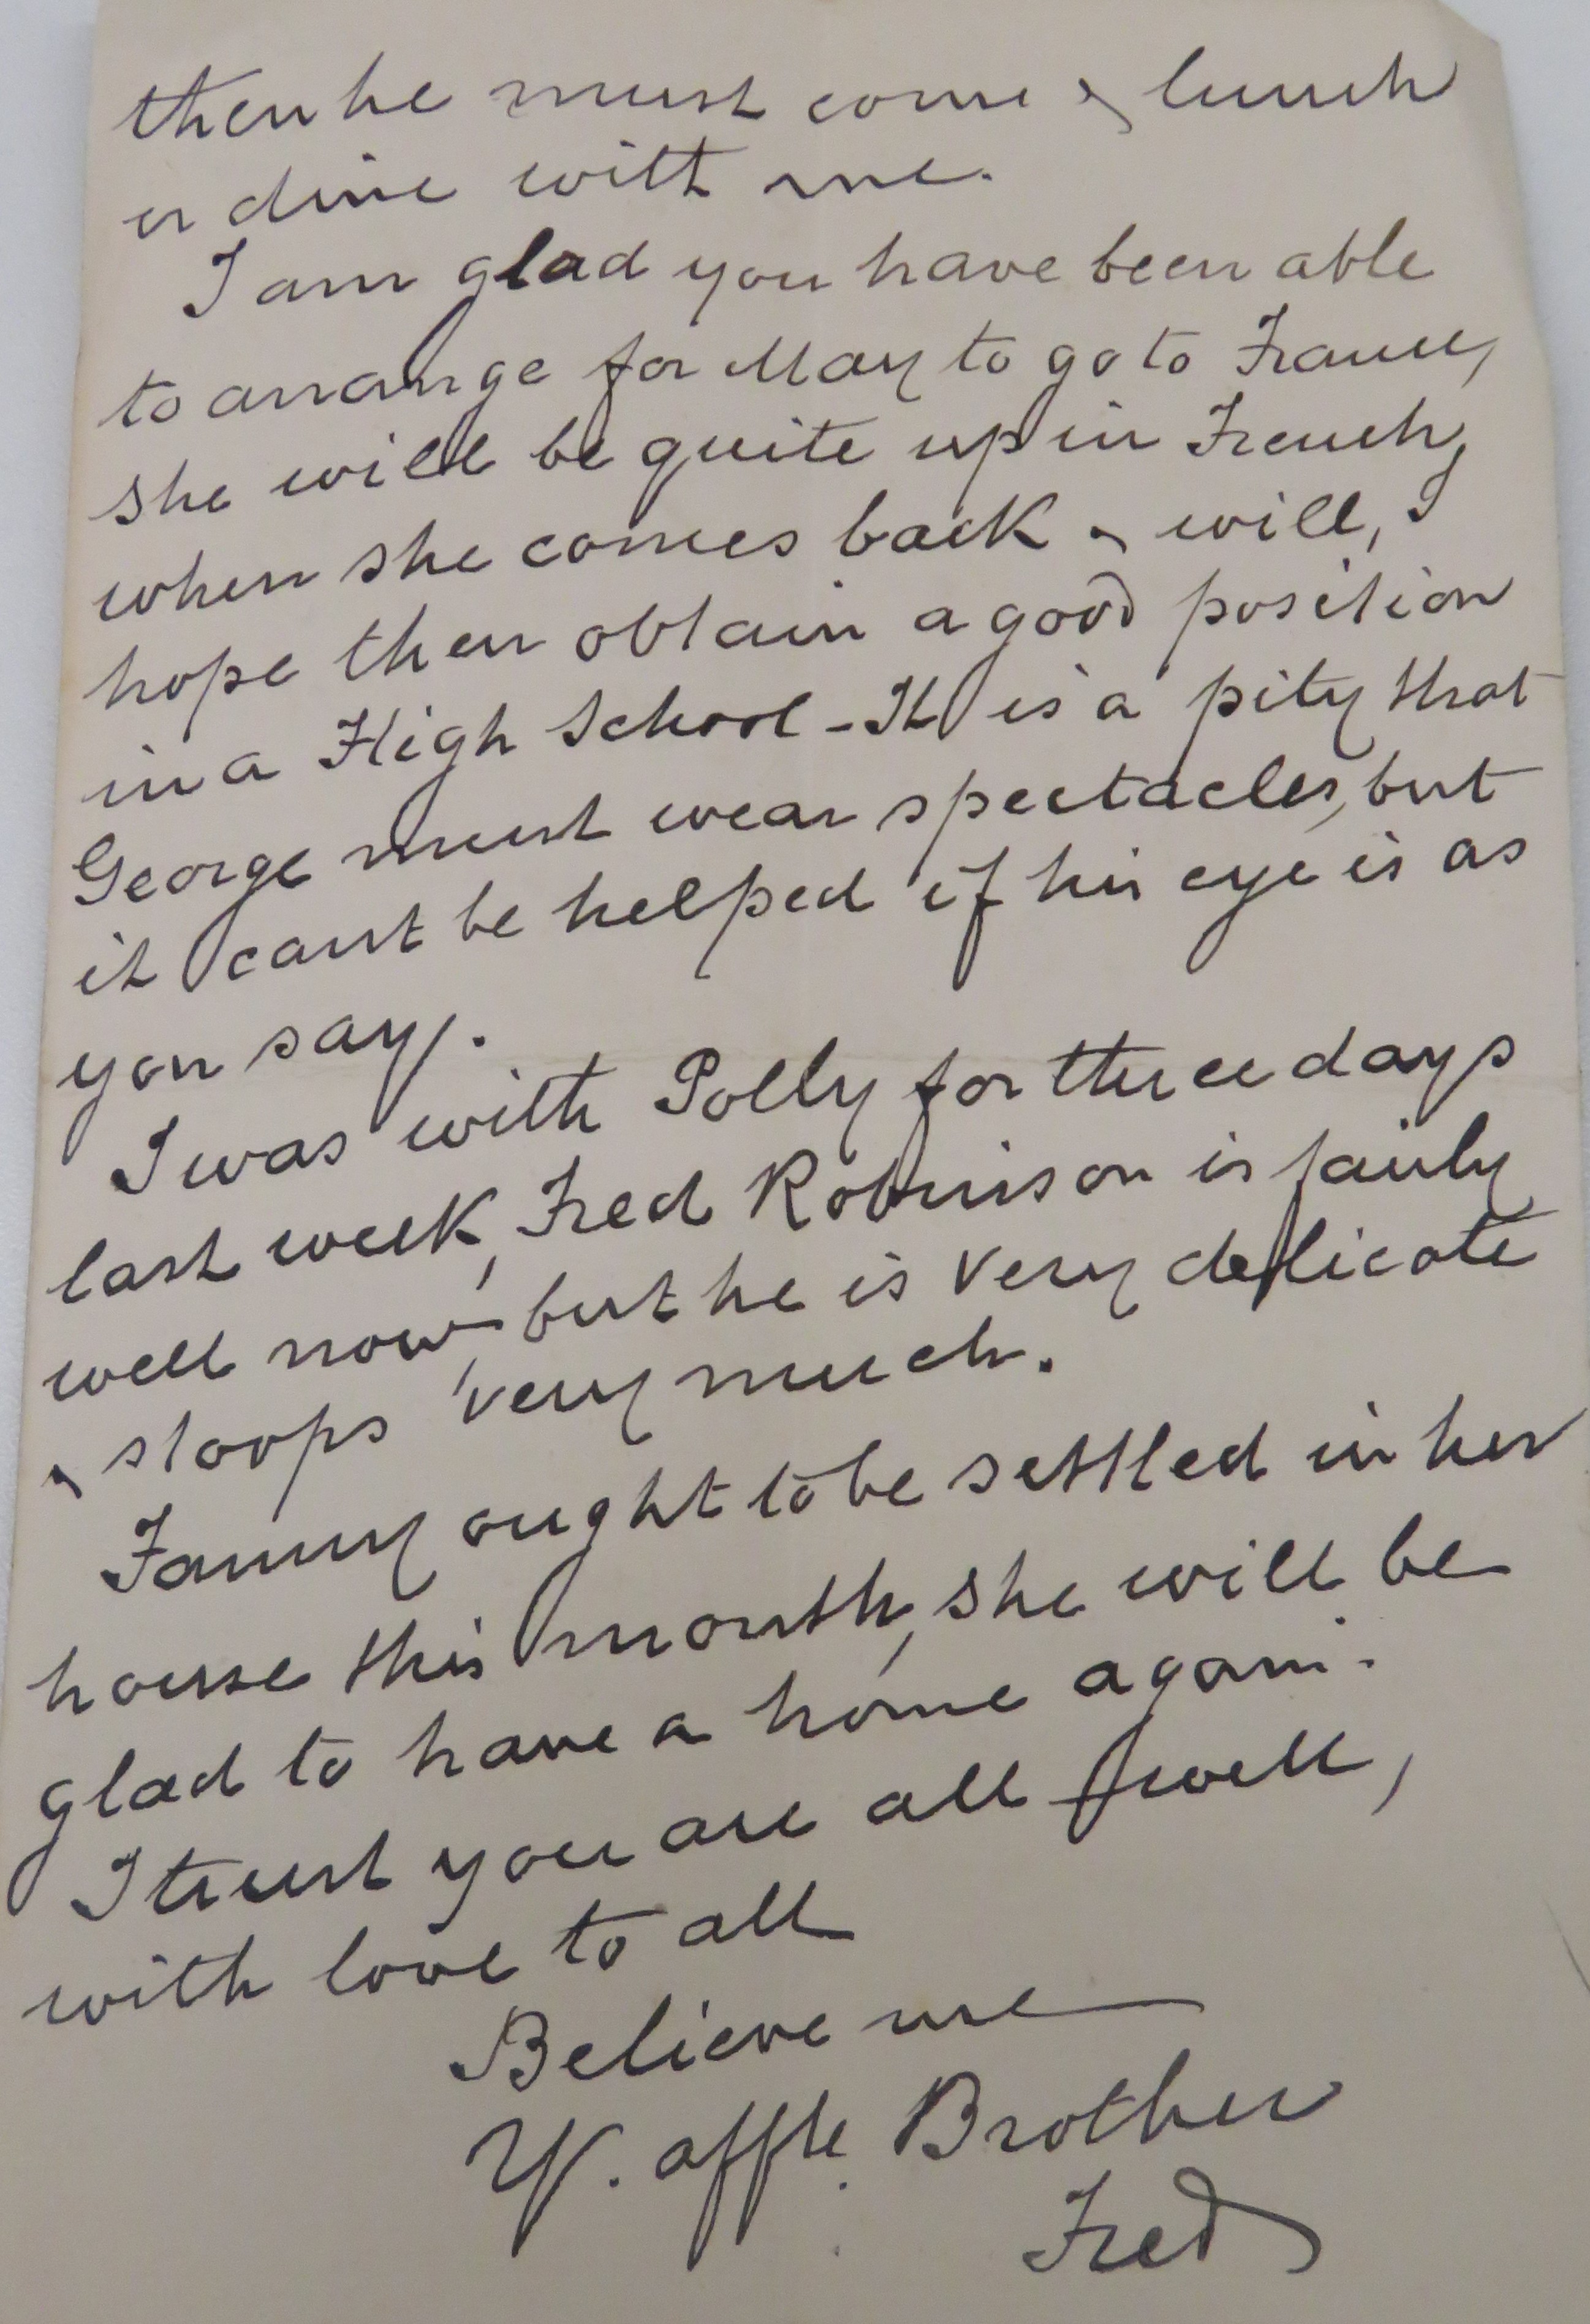 then he must come & lunch
or dine with me.
I am glad you have been able
to arrange for May to go to France,
she will be quite up in French,
when she comes back & will, I
hope then obtain a good position
in a High School - It is a pity that
George must wear spectacles, but
it cant be helped if his eye is as
you say.
I was with Polly for three days
last week, Fred Robinson is fairly
well now, but he is very delicate
& stoops very much.
Fanny ought to be settled in her
house this month, she will be
glad to have a home again.
I trust you are all well,
with love to all
Believe me
Yr. affte. Brother
Fred